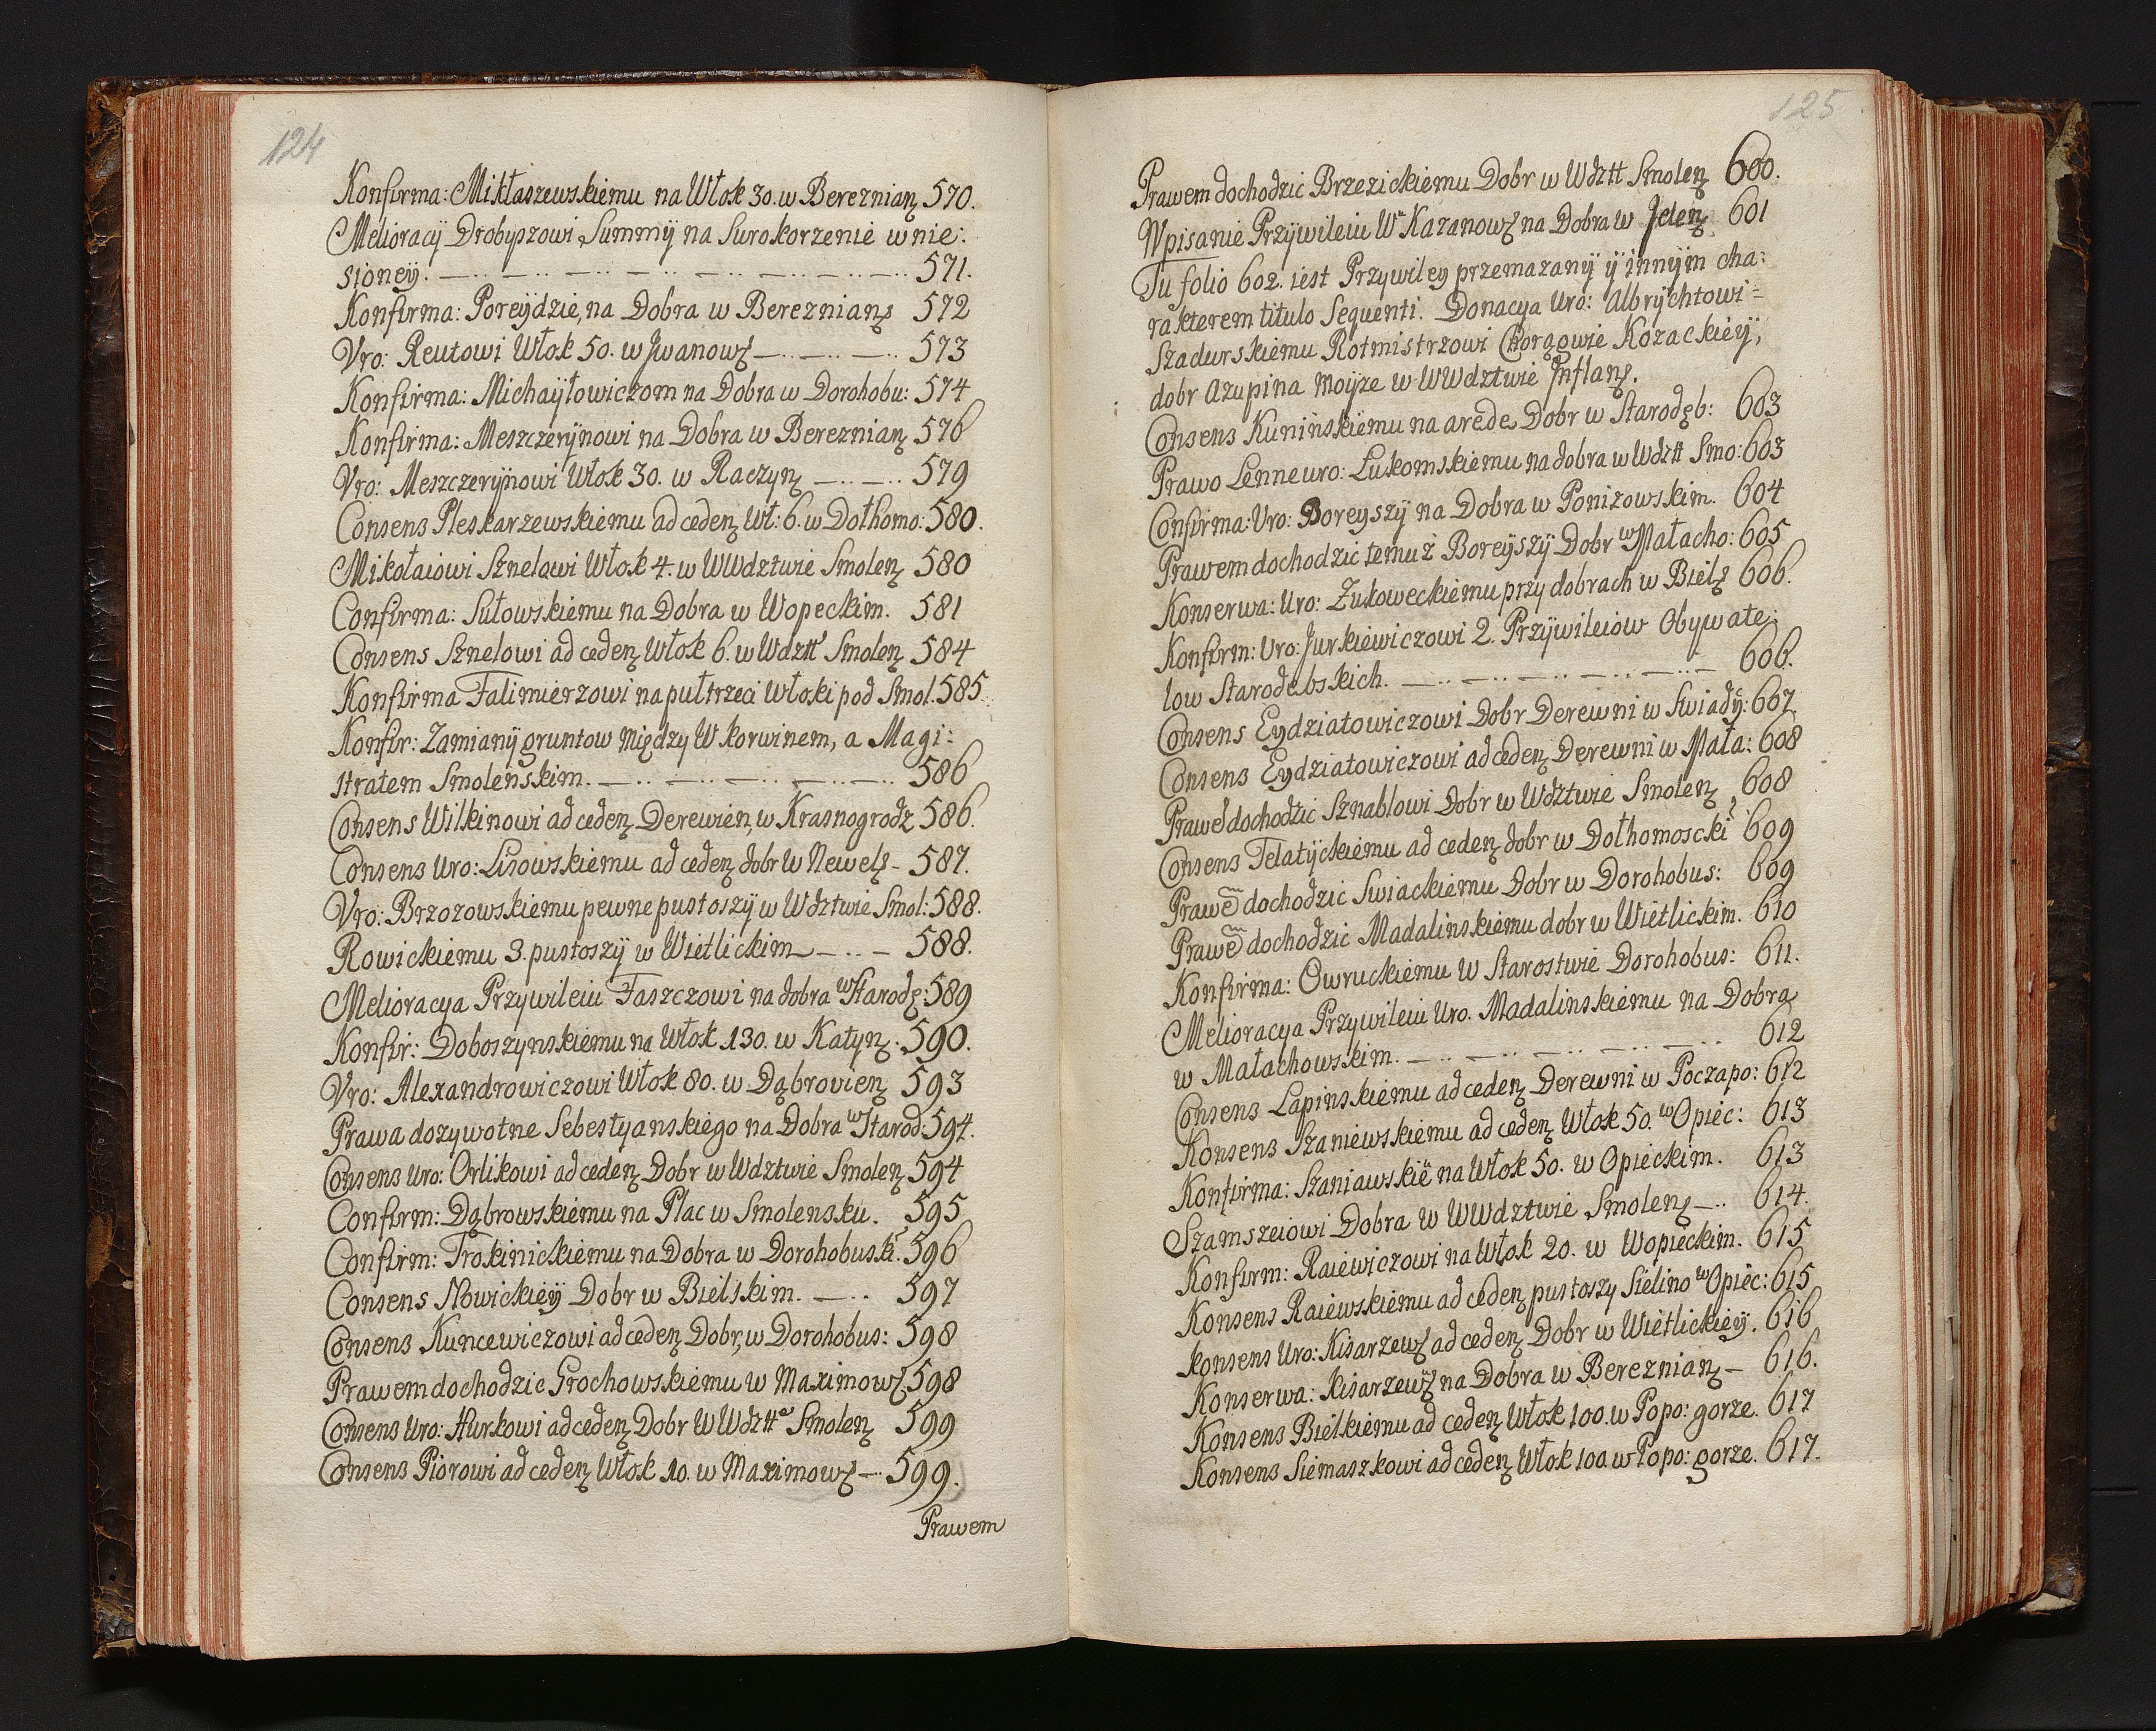 124
Konfirma: Mikłaszewskiemu na Włok 30. w Bereznian: 570.
Melioracÿ Drobyszowi Summÿ na Surokorzenie wnie:
sioneÿ. — .. — .. — .. — .. — .. — .. — 571.
Konfirma: Poreÿdzie, na Dobra w Bereznians 572
Vro: Reutowi Włok 50. w Jwanow: — .. — .. — .. 573
Konfirma: Michaÿłowiczom na Dobra w Dorohobu: 574
Konfirma: Meszczerÿnowi na Dobra w Bereznian: 576
Vro: Meszczerÿnowi Włok 30. w Raczyn: — .. — .. 579
Consens Pleskarzewskiemu ad ceden: Wł: 6. w Dołhomo: 580.
Mikołaiowi Sznelowi Włok 4. w WWdztwie Smolen: 580
Confirma: Sułowskiemu na Dobra w Wopeckim. 581
Consens Sznelowi ad ceden: Włok 6. w Wdztt Smolen: 584
Konfirma Falimierzowi na pułtrzeci Włoki pod Smol. 585.
Konfir: Zamianÿ gruntow między W Korwinem, a Magi:
stratem Smolenskim. — .. — .. — .. — .. — .. 586
Consens Wilkinowi ad ceden: Derewien, w Krasnogrodz 586.
Consens Uro: Lisowskiemu ad ceden: dobr w Newels - 587.
Vro: Brzozowskiemu pewne pustoszÿ w Wdztwie Smol: 588.
Rowickiemu 3. pustoszÿ w Wietlickim — .. — 588.
Melioracya Przywileiu Faszczowi na dobra w Starod: 589
Konfir: Doboszynskiemu na Włok 130. w Katyn: 590.
Vro: Alexandrowiczowi Włok 80. w Dąbrovien: 593
Prawa dozywotne Sebestyanskiego na Dobra w Starod: 594.
Consens Uro: Orlikowi ad ceden: Dobr w Wdztwie Smolen: 594
Confirm: Dąbrowskiemu na Plac w Smolensku. 595
Confirm: Trokinickiemu na Dobra w Dorohobuski: 596
Consens Nowickieÿ Dobr w Bielskim. — .. 597
Consens Kuncewiczowi ad ceden: Dobr, w Dorohobus: 598
Prawem dochodzic Grochowskiemu w Maximow: 598
Consens Uro: Hurkowi ad ceden: Dobr W Wdztte Smolen: 599
Consens Piorowi ad ceden: Włok 10. w Maximow: — 599.
Prawem
125
Prawem dochodzic Brzezickiemu Dobr w Wdztt Smolen: 600.
Wpisanie Przÿwileiu We Kazanow: na Dobra w Jelen: 601
Tu folio 602. iest Przywiley przemazanÿ ÿ innÿm cha:
rakterem titulo sequenti. Donacya Uro: Albrÿchtowi=
Szadurskiemu Rotmistrzowi Chorągowie Kozackieÿ,
dobr Azupina Moÿze w WWdztwie Jnflans.
Consens Kuninskiemu na arede Dobr w Starodęb: 603
Prawo Lenne uro: Lukomskiemu na dobra w Wdztt Smo: 603
Confirma: Uro: Boreyszÿ na Dobra w Ponizowskim. 604
Prawem dochodzic temuz Boreÿszÿ Dobr w Małacho: 605
Konserwa: Uro: Zukoweckiemu przy dobrach w Biels 606.
Konfirm: Uro: Jurkiewiczowi 2. Przÿwileiow Obywate:
low Starodebskich. — .. — .. — .. — .. — 606.
Consens Eydziatowiczowi Dobr Derewni w Swiadÿ: 607.
Consens Eydziatowiczowi ad ceden: Derewni w Mała: 608
Prawe dochodzic Sznablowi Dobr w Wdztwie Smolen: 608
Consens Telatÿckiemu ad ceden: dobr w Dołhomoscki 609
Prawe dochodzic Swiackiemu Dobr w Dorohobus: 609
Prawe dochodzic Madalinskiemu dobr w Wietlickim. 610
Konfirma: Owruckiemu w Starostwie Dorohobus: 611.
Melioracya Przywileiu Uro. Madalinskiemu na Dobra
w Małachowskim. — .. — .. — .. — .. — .. 612
Consens Lapinskiemu ad ceden: Derewni w Poczapo: 612
Konsens Szaniewskiemu ad ceden: Włok 50. w Opiec: 613
Konfirma: Szaniawskie na Włok 50. w Opieckim. 613
Szamszeiowi Dobra w WWdztwie Smolen: — .. 614.
Konfirm: Raiewiczowi na Włok 20. w Wopieckim. 615
Konsens Raiewskiemu ad ceden: pustoszy Sielino w Opiec: 615
Konsens Uro: Kisarzew: ad ceden: Dobr w Wietlickieÿ. 616
Konserwa: Kisarzew: na Dobra w Bereznian: — 616.
Konsens Bielkiemu ad ceden: Włok 100. w Popo: gorze. 617
Konsens Siemaszkowi ad ceden: Włok 100. w Popo: gorze. 617.